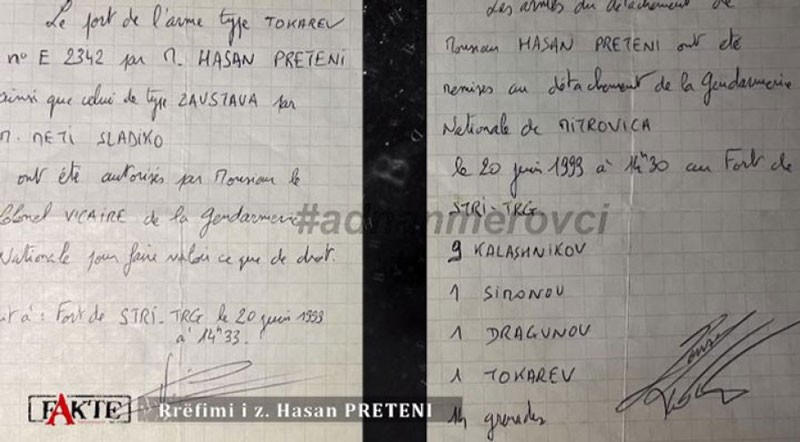 Le port de l'arme type TOKAREV
n° E 2342 par M. HASAN PRETENI
ainsi que celui de type ZAVSTAVA par
M. METI SLADIKO
ont été autorisés par Monsieur le
Colonel VICAIRE de la Gendarmerie
Nationale pour faire valoir ce que de droit.
Fait à : Fort de STRI-TRG le 20 juin 1999
à 14h33.
Les armes du détachement de
Monsieur HASAN PRETENI ont été
remises au détachement de la Gendarmerie
Nationale de MITROVICA
le 20 juin 1999 à 14h30 au Fort de
STRI-TRG
9 KALASHNIKOV
1 SIMONOV
1 DRAGUNOV
1 TOKAREV
14 grenades
#adnanmerovci
FAKTE
Rrëfimi i z. Hasan PRETENI